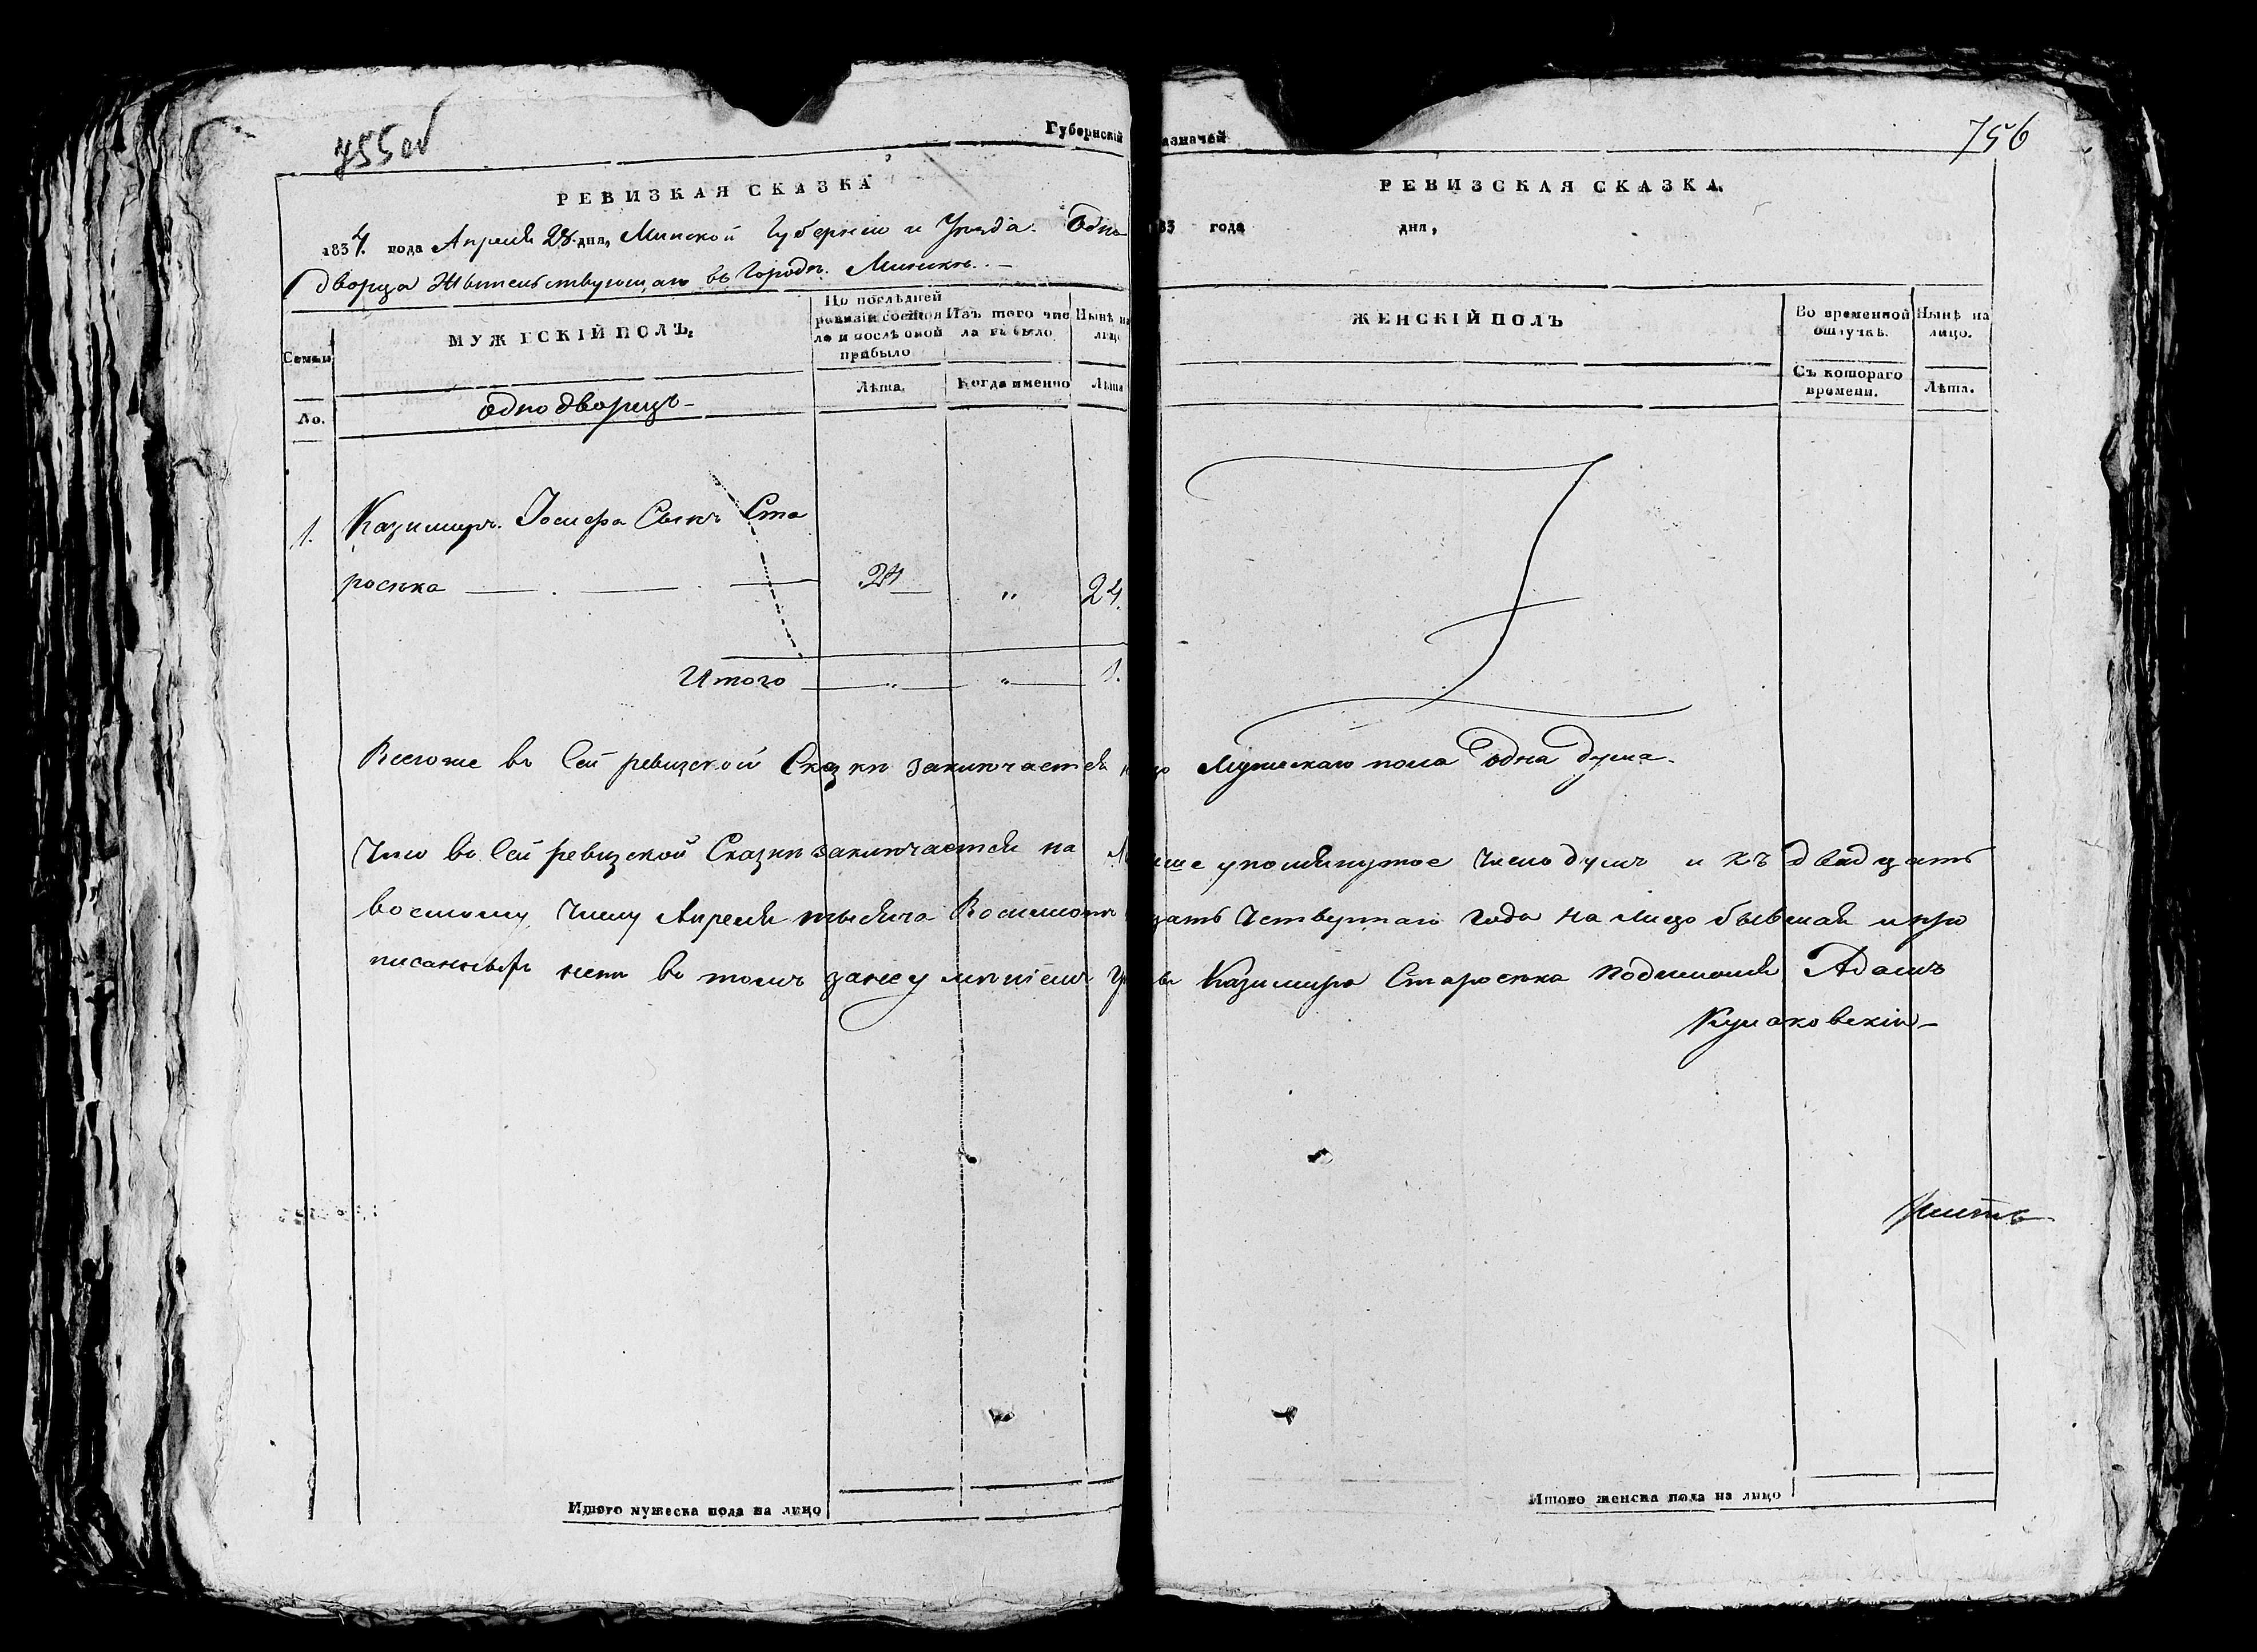 755об
Губернскій
РЕВИЗКАЯ СКАЗКА
1834. года Апреля 28. дня, Минской Губерніи и Уезда. Одно
дворца Жительствующаго въ Городѣ Минскѣ. —
Семьи
МУЖЕСКІЙ ПОЛЪ,
По послѣдней
ревизіи состоя
ло и послѣ оной
прибыло
Изъ того чис
ла выбыло
Нынѣ на
лицо
Лѣта.
Когда именно
Лѣта
No.
Однодворецъ —
1. Казимиръ Іосифа Сынъ Ста
росѣка 24 „ 24.
Итого „ „ 1.
Всегоже въ сей ревизской Сказки заключается
Что въ сей ревизской Сказки заключается на
восмому числу Апреля тысяча Восимсотъ
писанныхъ нетъ въ томъ занеуменіемъ
азначей
756
РЕВИЗСКАЯ СКАЗКА.
183 года дня,
ЖЕНСКІЙ ПОЛЪ
Во временной
отлучкѣ.
Нынѣ на
лицо.
Съ котораго
времени.
Лѣта.
Мужескаго пола Одна душа.
упомянутое число душъ и къ двадцать
цать Четвертаго года на лицо бывшая и про
Казимира Старосека подписался Адамъ
Кушаковскій —
Итого мужеска пола на лицо
Итого женска пола на лицо